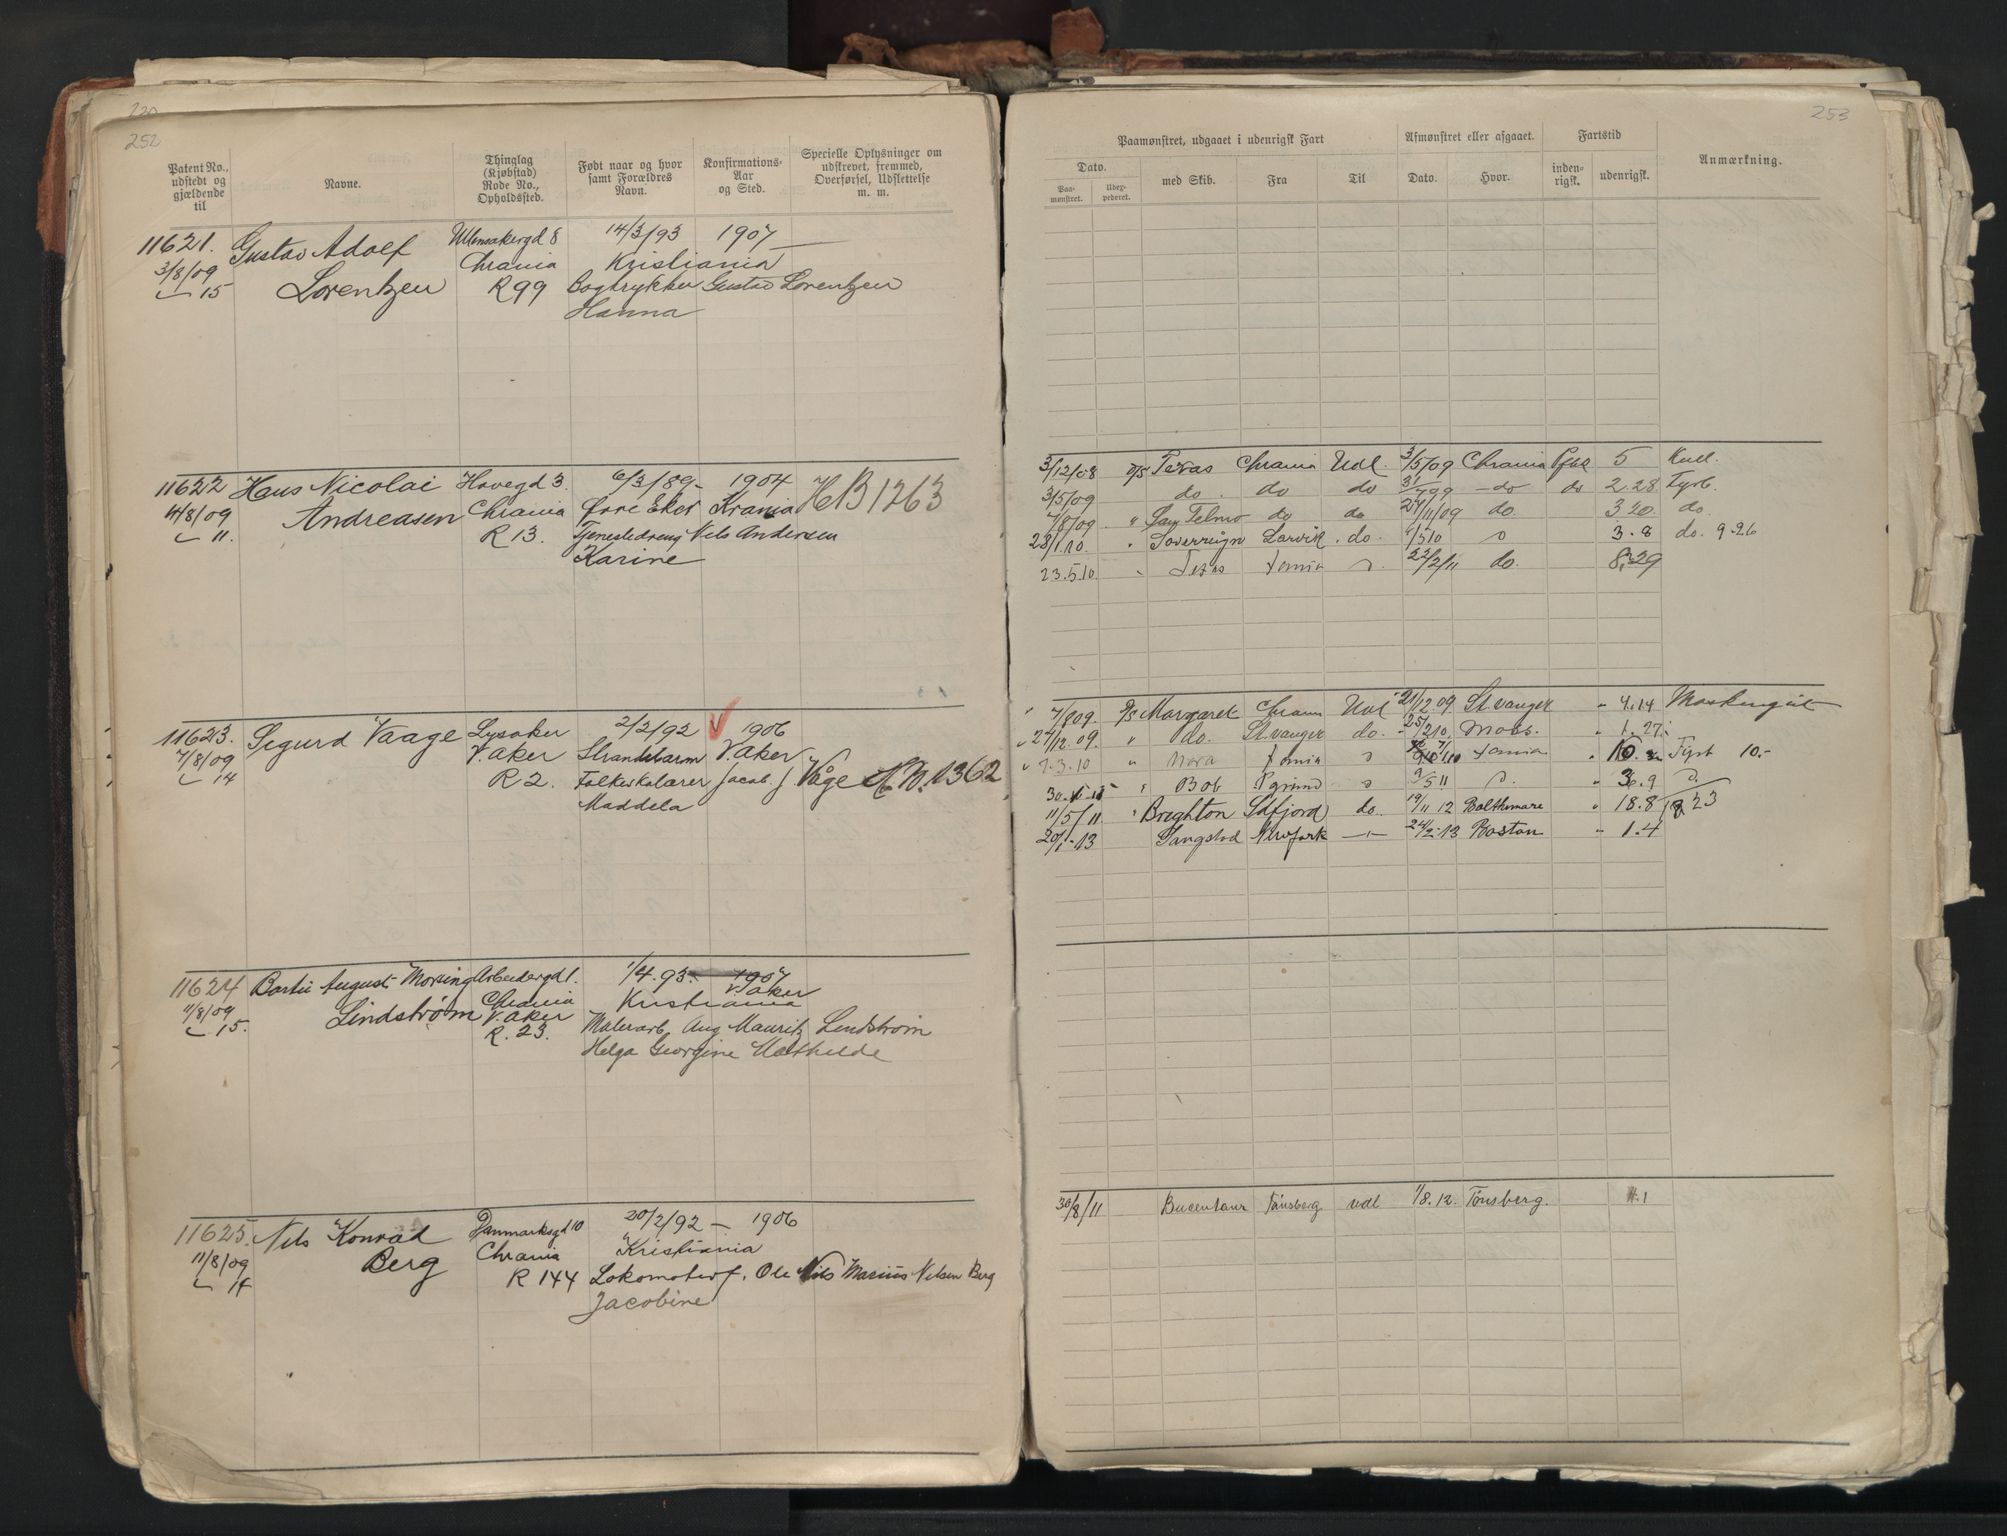 252
Patent No., udstedt og gjældende til
Navne.
Thinglag (Kjøbstad) Rode No., Opholdssted.
Født naar og hvor samt Forældres Navn.
Konfirmations- Aar og Sted.
Specielle Oplysninger om udskrevet, fremmed, Overførsel, Udslettelse m. m.
11621. Gustav Adolf Ullensakergd 8 14/3/93 1907
3/8/09 Chrania Kristiania
15 Lorentzen R 99 Bogtrykker Gustav Lorentzen
Hanna
11622 Hans Nicolai Havegd 3. 6/3/89 - 1904 HB 1263
4/8/09 Andreasen Chrania Øvre Eker Krania
11. R 13. Tjenestedreng Nils Andersen
Karine
11623. Sigurd Vaage Lysaker 2/2/92 1906
7/8/09 V. Aker Strandebarm V. Aker
14 R 2. Folkeskolelærer Jacob J Våge H.B. 1362
Maddela
11624 August Morsing Arbeidergd 1. 1/4.93 - 1907
Chrania Kristiania V. Aker
11/8/09 Lindstrøm V. Aker
15. R. 23. Malerarb. Aug Mauritz Lindstrøm
Helga Georgine Mathilde
11625. Nils Konrad Danmarksgd 10 20/2/92 - 1906
11/8/09 Berg Chrania Kristiania
14 R 144 Lokomotivf. Ole Nils Marius Nilsen Berg
Jacobine
253
Paamønstret, udgaaet i udenrigsk Fart
Afmønstret eller afgaaet.
Fartstid
Anmærkning.
Dato.
Paa- mønstret.
Udex- pederet.
med Skib.
Fra
Til
Dato.
Hvor.
inden- rigsk.
udenrigsk.
3/12/08 D/S Texas Chrania Udl. 3/5/09 Chrania 5 Kull.
3/5/09 do. do do do do 2.28 Fyrb.
7/8/09 " San Telmo do do 27/11/09 do. 3 20. do.
28/1.10. " Sovereign Larvik. do. 1/5 10 3.8 do. 9.26
23.5.10. " Texas 22/2/11 do. 8.29
7/8 09. D/S Margaret Chrania Udl 21/12.09 St.vanger " 4.14
22/12.09. " do. St.vanger do. 25/2 10. Moss. " 1.27.
7.3.10 " Nora " 10. Fyrb 10.-
" Bob Pgrund 9/5 11 " 3.9
11/5/11 " Brighton do. 19/11 12 Balthimare " 18.8 23
20/1-13 Newyork 24/2-13 Boston " 1.4
30/8/11 Bucentaur Tønsberg udl 1/8.12. Tønsberg. 11.1